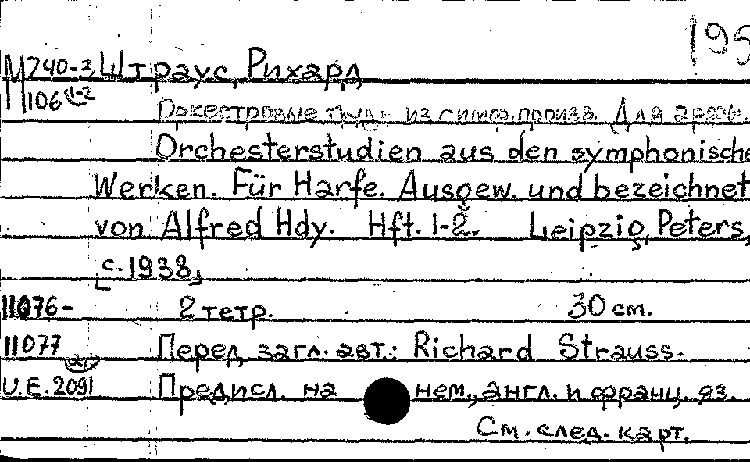 195
М240-3 Штраус, Рихард
М106 1-2
Оркестровые труд. из симф. произв. Для арфы.
Orchesterstudien aus den symphonische
Werken. Für Harfe. Ausgew. und bezeichnet
von Alfred Hdy. Hft. 1-2. Leipzig, Peters,
[c. 1938]
11076- 2 тетр. 30 см.
11077 Перед загл. авт.: Richard Strauss.
U.E. 2091 Предисл. на нем., англ. и франц. яз.
См. след. карт.